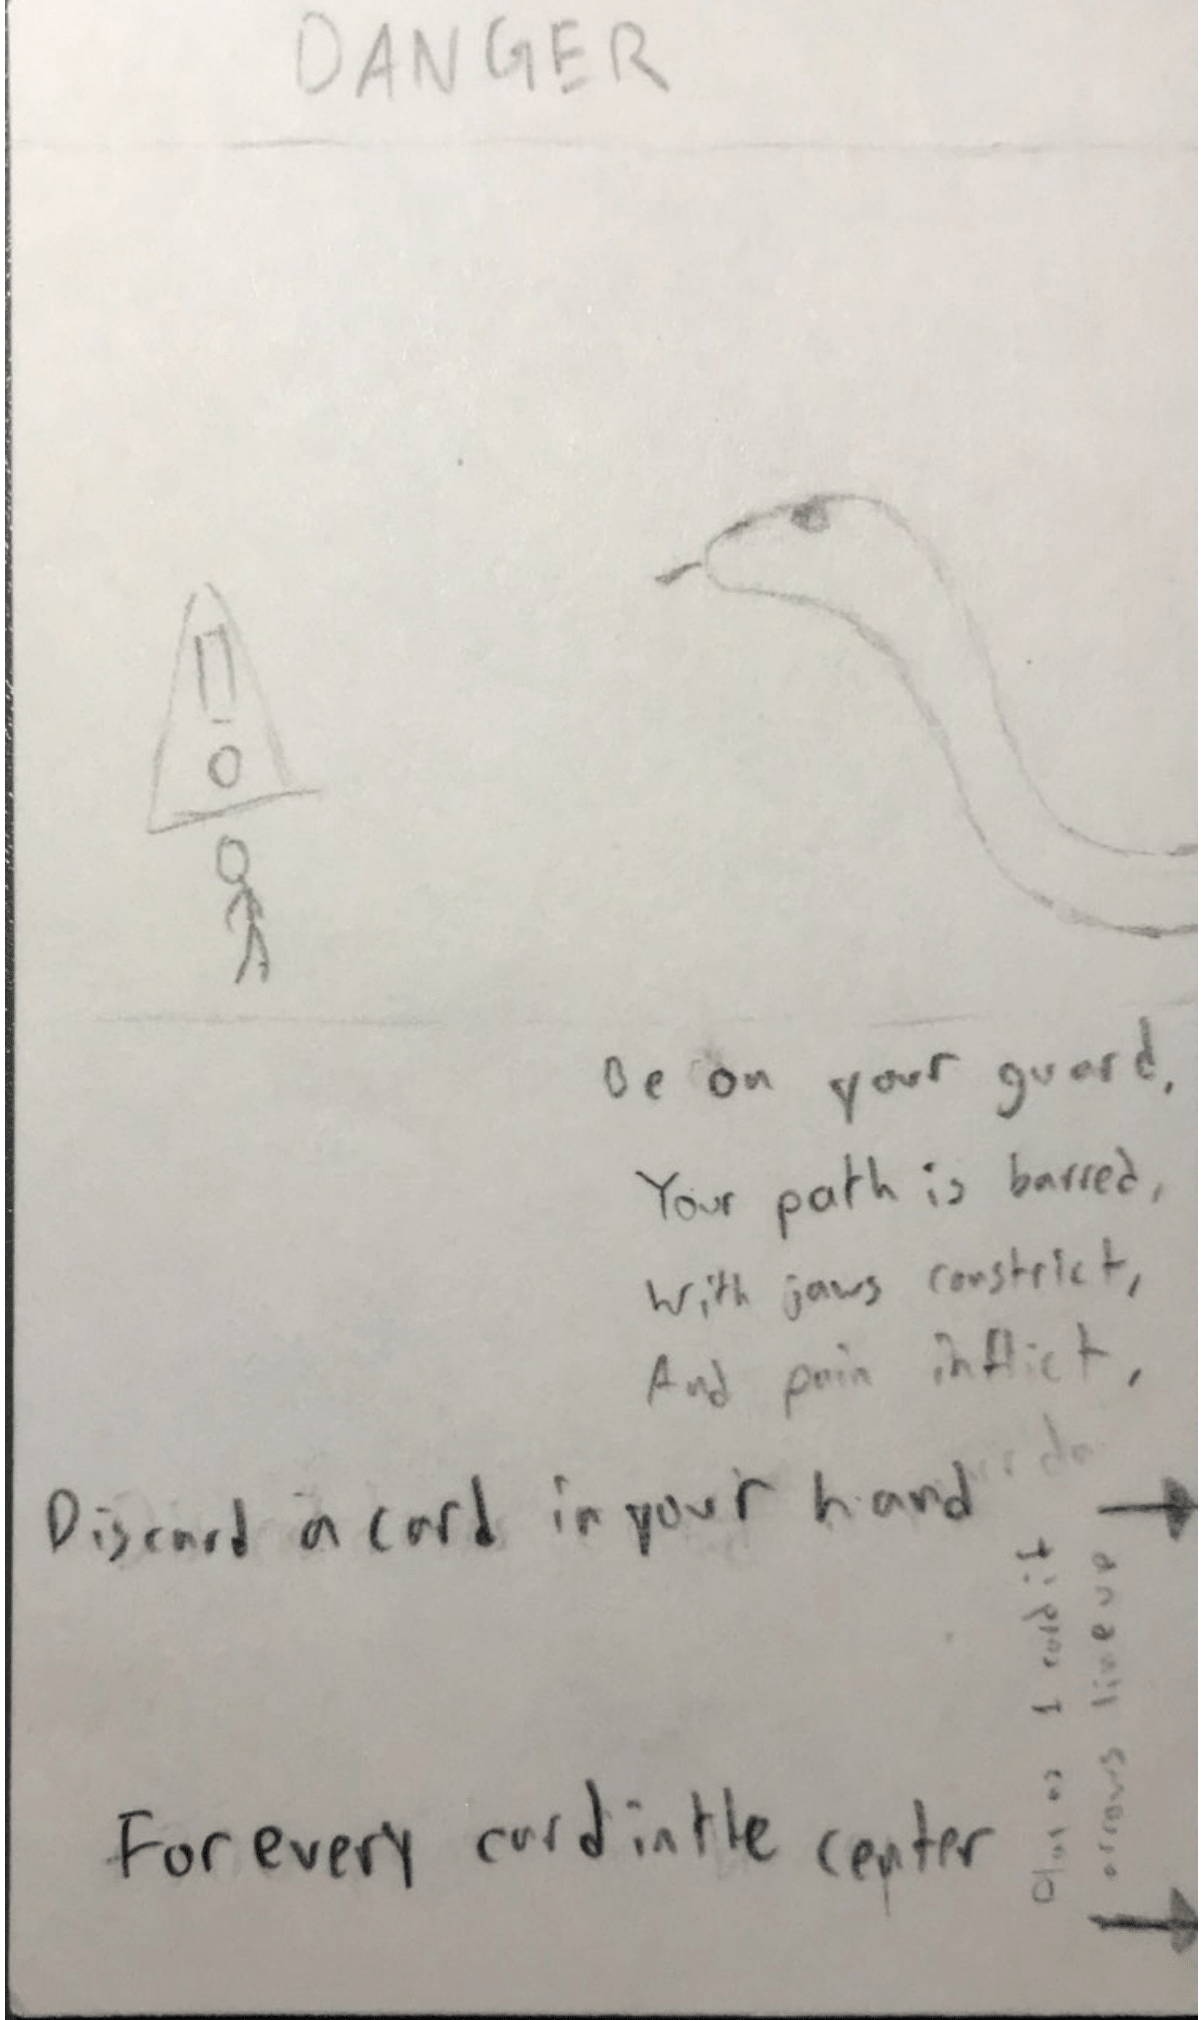 DANGER
Be on your guard,
Your path is barred,
With jaws constrict,
And pain inflict,
Discard a card in your hand
For every card in the center
Play as 1 card if
arrows line up